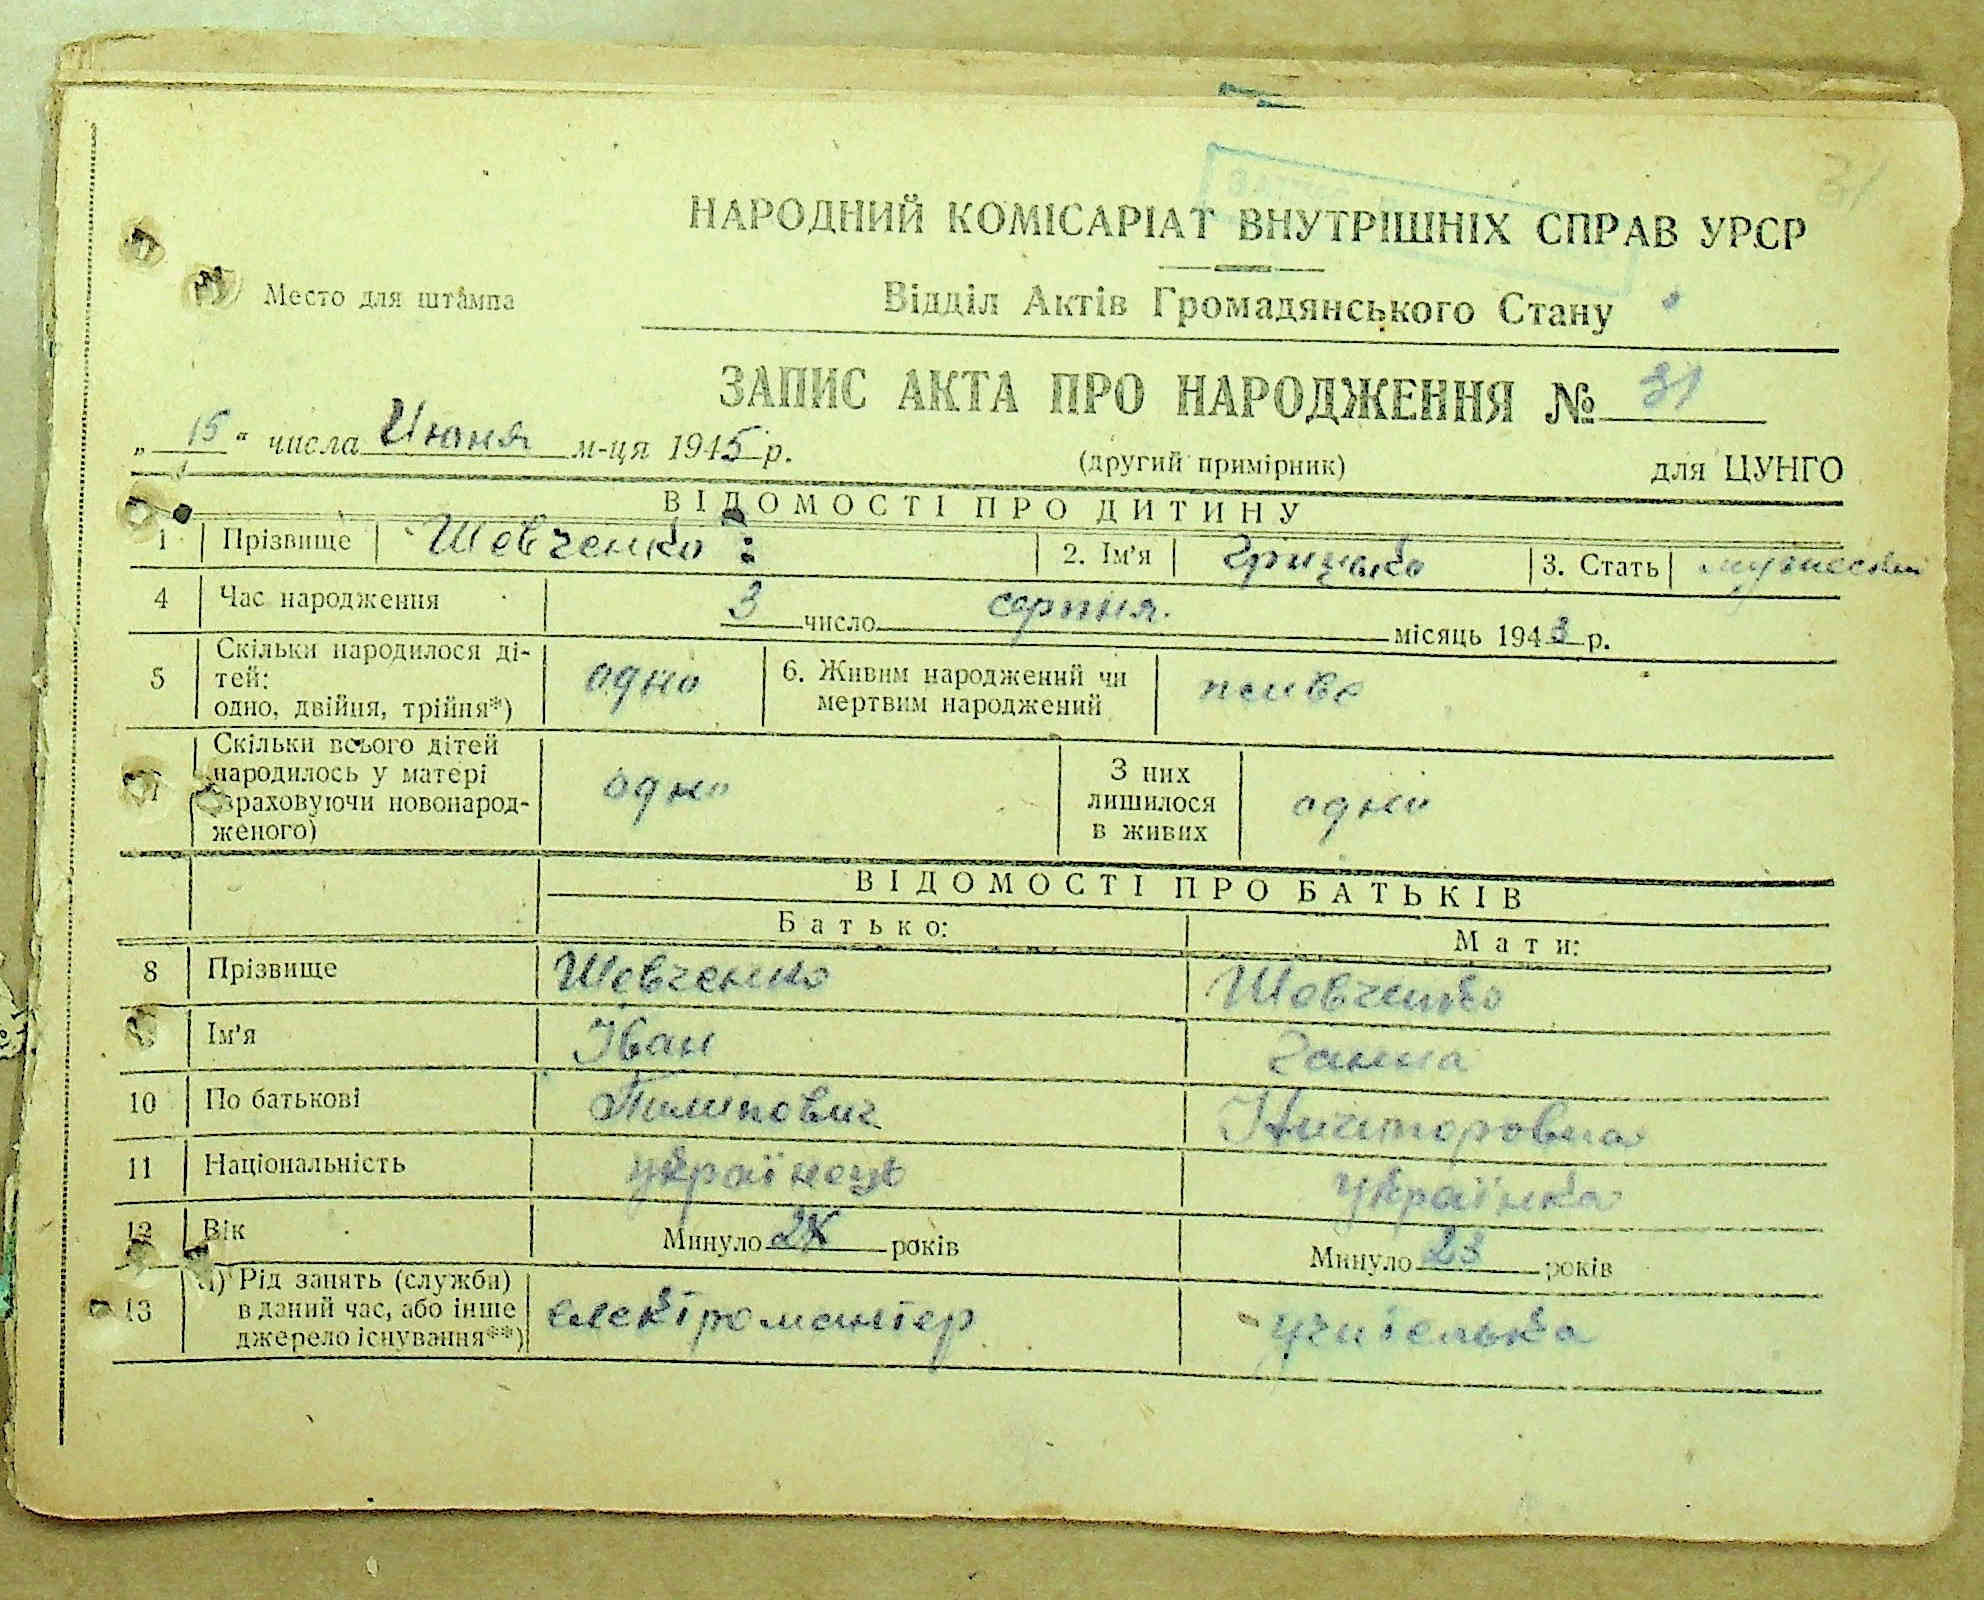 31
НАРОДНИЙ КОМІСАРІАТ ВНУТРІШНІХ СПРАВ УРСР
Место для штампа
Відділ Актів Громадянського Стану
ЗАПИС АКТА ПРО НАРОДЖЕННЯ № 31
„ 15 “ числа Июня м-ця 1945 р.
(другий примірник) для ЦУНГО
ВІДОМОСТІ ПРО ДИТИНУ
1 Прізвище Шевченко 2. Ім'я Грицько 3. Стать мужеский
4 Час народження 3 число серпня місяць 1943 р.
5 Скільки народилося ді-
тей:
одно, двійня, трійня*) одно 6. Живим народжений чи
мертвим народжений живе
7 Скільки всього дітей
народилось у матері
враховуючи новонарод-
женого) одно З них
лишилося
в живих одно
ВІДОМОСТІ ПРО БАТЬКІВ
Батько: Мати:
8 Прізвище Шевченко Шевченко
Ім'я Іван Ганна
10 По батькові Пиліпович
11 Національність українець українка
12 Вік Минуло років Минуло 23 років
13 а) Рід занять (служби)
в даний час, або інше
джерело існування**) електромантер учителька